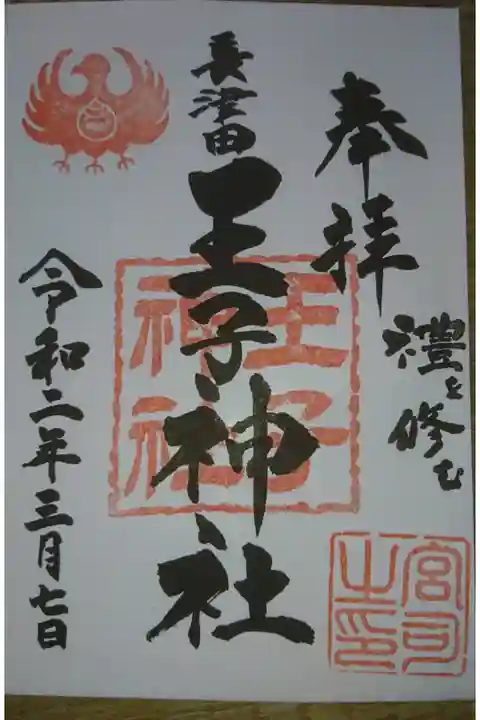 奉拝
禮を修む
長津田
王子神社
令和二年三月七日
王子神社
宮司之印